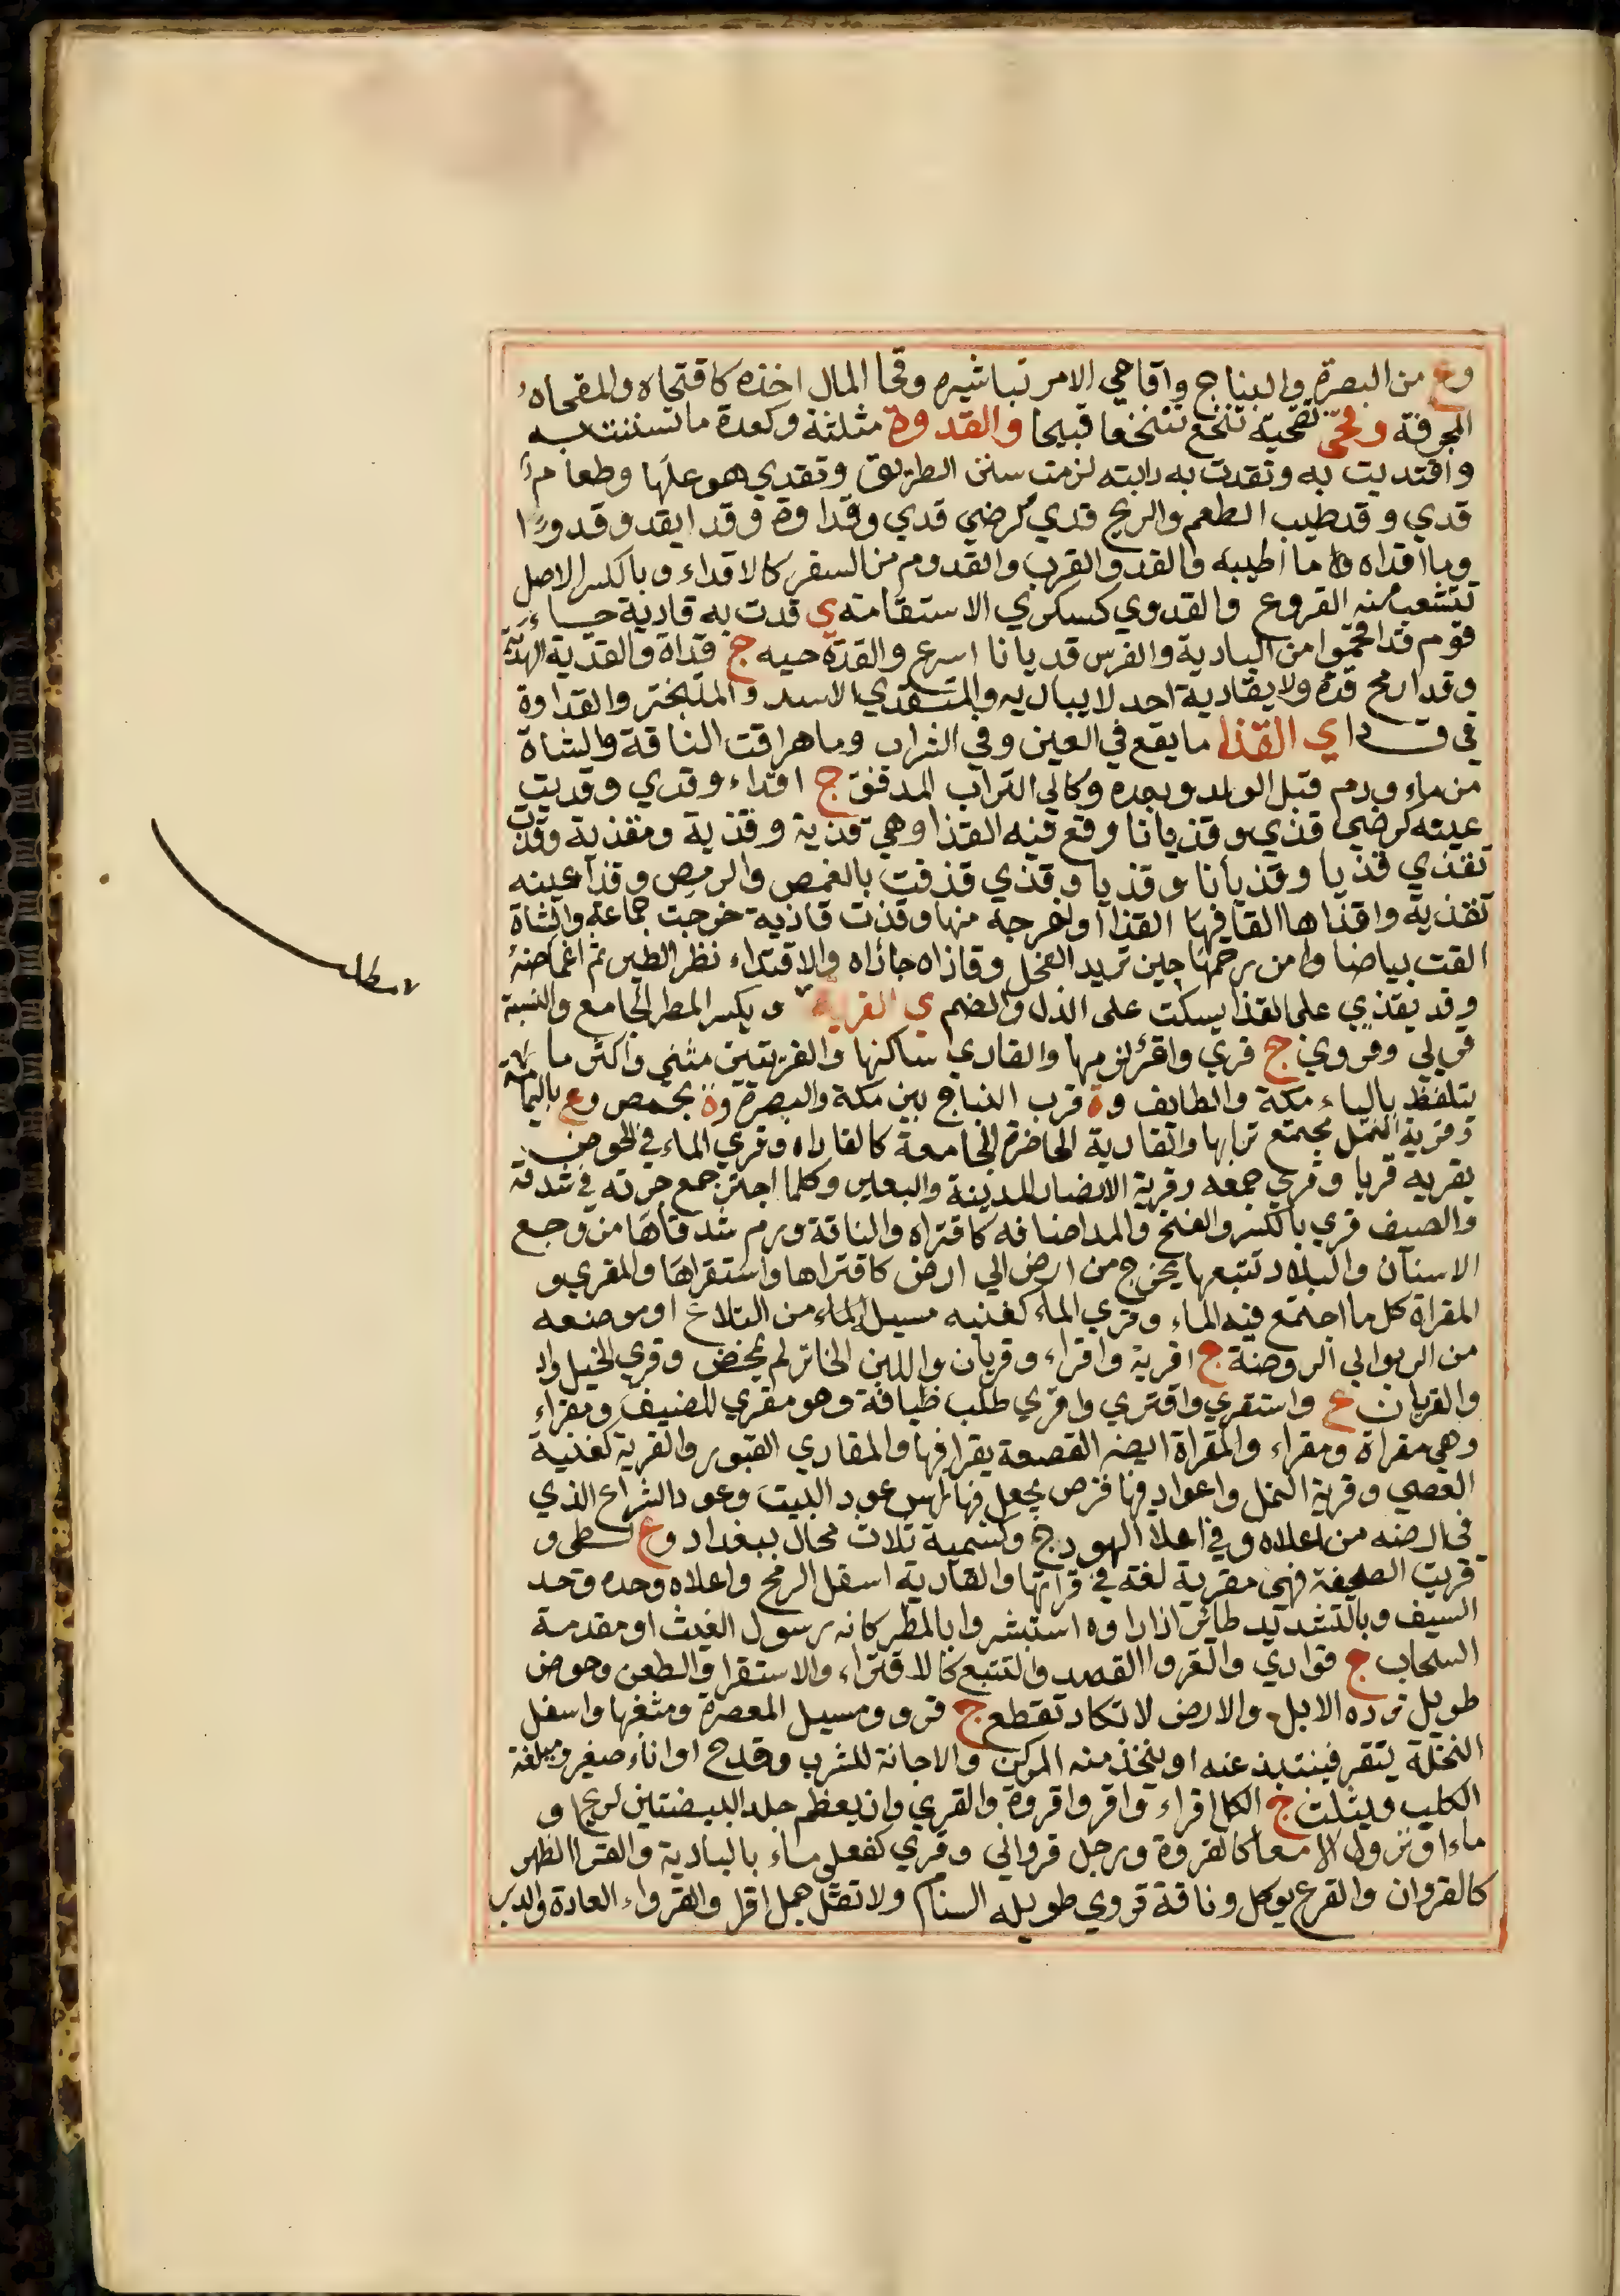 وع من البصرة والبناج وآقاحي الامر تباشيره وقحا المال اخذه كاقتحاه والمقحاه
المجرفة وقحى تقحية تنخع تنخعا قبيحا والقدوة مثلثة وكعدة ماتسننت به
وافتديت به وتقدت به دابته لزمت سنن الطريق وتقدي هو علها وطعام
قدي وقد طيب الطعم والريح قدي كرضي قدي وقداوة وقدا يقدو قدوا
وما اقداه ما اطيبه والقدو القرب والقدوم من السفر كالاقداء وبالكسر الاصل
تتشعب منه الفروع والقدوي كسكري الاستقامته ي قدت به قادية جاء
قوم قد اقحموا من البادية والفرس قديانا اسرع والقدة حيه ج قداة والقدية الهدية
وقدا رمح قدة ولا يقاديه احد لا يباليه والمتقدي الاسد والمتبختر والقداوة
في ق د ا ي القذا ما يقع في العين وفي الشراب وما هراقت الناقة والشاة
من ماء ودم قبل الولد وبعده وكالي التراب المدقق ج اقداء وقدي وقديت
عينه كرضي قذي وقذيانا وقع فيه القذا وهي قذية وقذية ومقذية وقذت
تقذي قذيا وقذيانا وقذيا وقذي قذفت بالغمص والرمص وقذا عينه
تقذية واقذاها القا فيها القذا اواخرجه منها وقذت قاذية خرجت جماعة والشاة
القت بياضا وامن رحمها حين تريد الفحل وقاذاه جازاه والاقتذاء نظر الطير ثم اغماضه
وقد يقذي على القذا يسكت على الذل والضم ي القرية ويكسر المطر الجامع والنسبة
قولي وقروي ج قري واقرئ لزمها والقاري ساكنها والقريتين مثني واكثر ما
يتلفظ بالياء مكة والطايف وة قرب النباج بين مكة والبصرة وة بحمص وع باليمامة
وقرية النمل مجتمع ترابها والقادية الحاضرة الجامعة كالقاداه وقري الماء في الحوض
يقريه قريا وقري جمعه وقرية الانصار المدينة والبعير وكلما اجتر جمع جرته في شدقه
والضيف قري بالكسر والفتح والمد اضافه كاقتراه والناقة ورم شدقاها من وجع
الاسنان والبلاد تتبعها يخرج من ارض الي ارض كاقتراها واستقراها والمقري و
المقراة كل ما اجتمع فيه الماء وقري الماء كغنيه مسيل الماء من التلاع او موضعه
من الربوالي الروضة ج اقرية واقراء وقريان واللبن الخاثر لم يمخض وقري الخيل واد
والقريان ع واستقري واقتري واقري طلب ضيافة وهو مقري للضيف ومقراء
وهي مقراة ومقراء والمقراة ايضه القصعة يقرا فيها والمقاري القبور والقرية كغنية
العصي وقرية النمل واعواد فيها فرض يجعل فيها راس عود البيت وعود الشراع الذي
في ارضه من اعلاه وفي اعلا الهودج وكسمية ثلاث محال ببغداد وع لطي و
قريت الصحيفة فهي مقرية لغة في قراتها والقارية اسفل الرمح واعلاه وحده وحد
السيف وبالتشديد طائر اذا راوه استبشروا بالمطر كانه رسول الغيث او مقدمة
السحاب ج قواري والقروا القصد والتتبع كالاقتراء والاستقرا والطعن وحوض
طويل ترده الابل والارض لا تكاد تقطع ج قرو ومسيل المعصرة ومثعبها واسفل
النخلة ينقر فينتبذ عنه او يتخذ منه المركن والاجانة للشرب وقدح اواناء صغير وميلغة
الكلب ويثلث ج الكل اقراء واقر واقروة والقري وان يعظم جلد البيضتين لريح او
ماء او نزول الامعا كالقروة ورجل قرواني وقري كفعلي ماء بالبادية والقرا الظهر
كالقروان والقرع يوكل وناقة قروي طويله السنام ولا تقل جمل اقرا والقرواء العادة والدبر